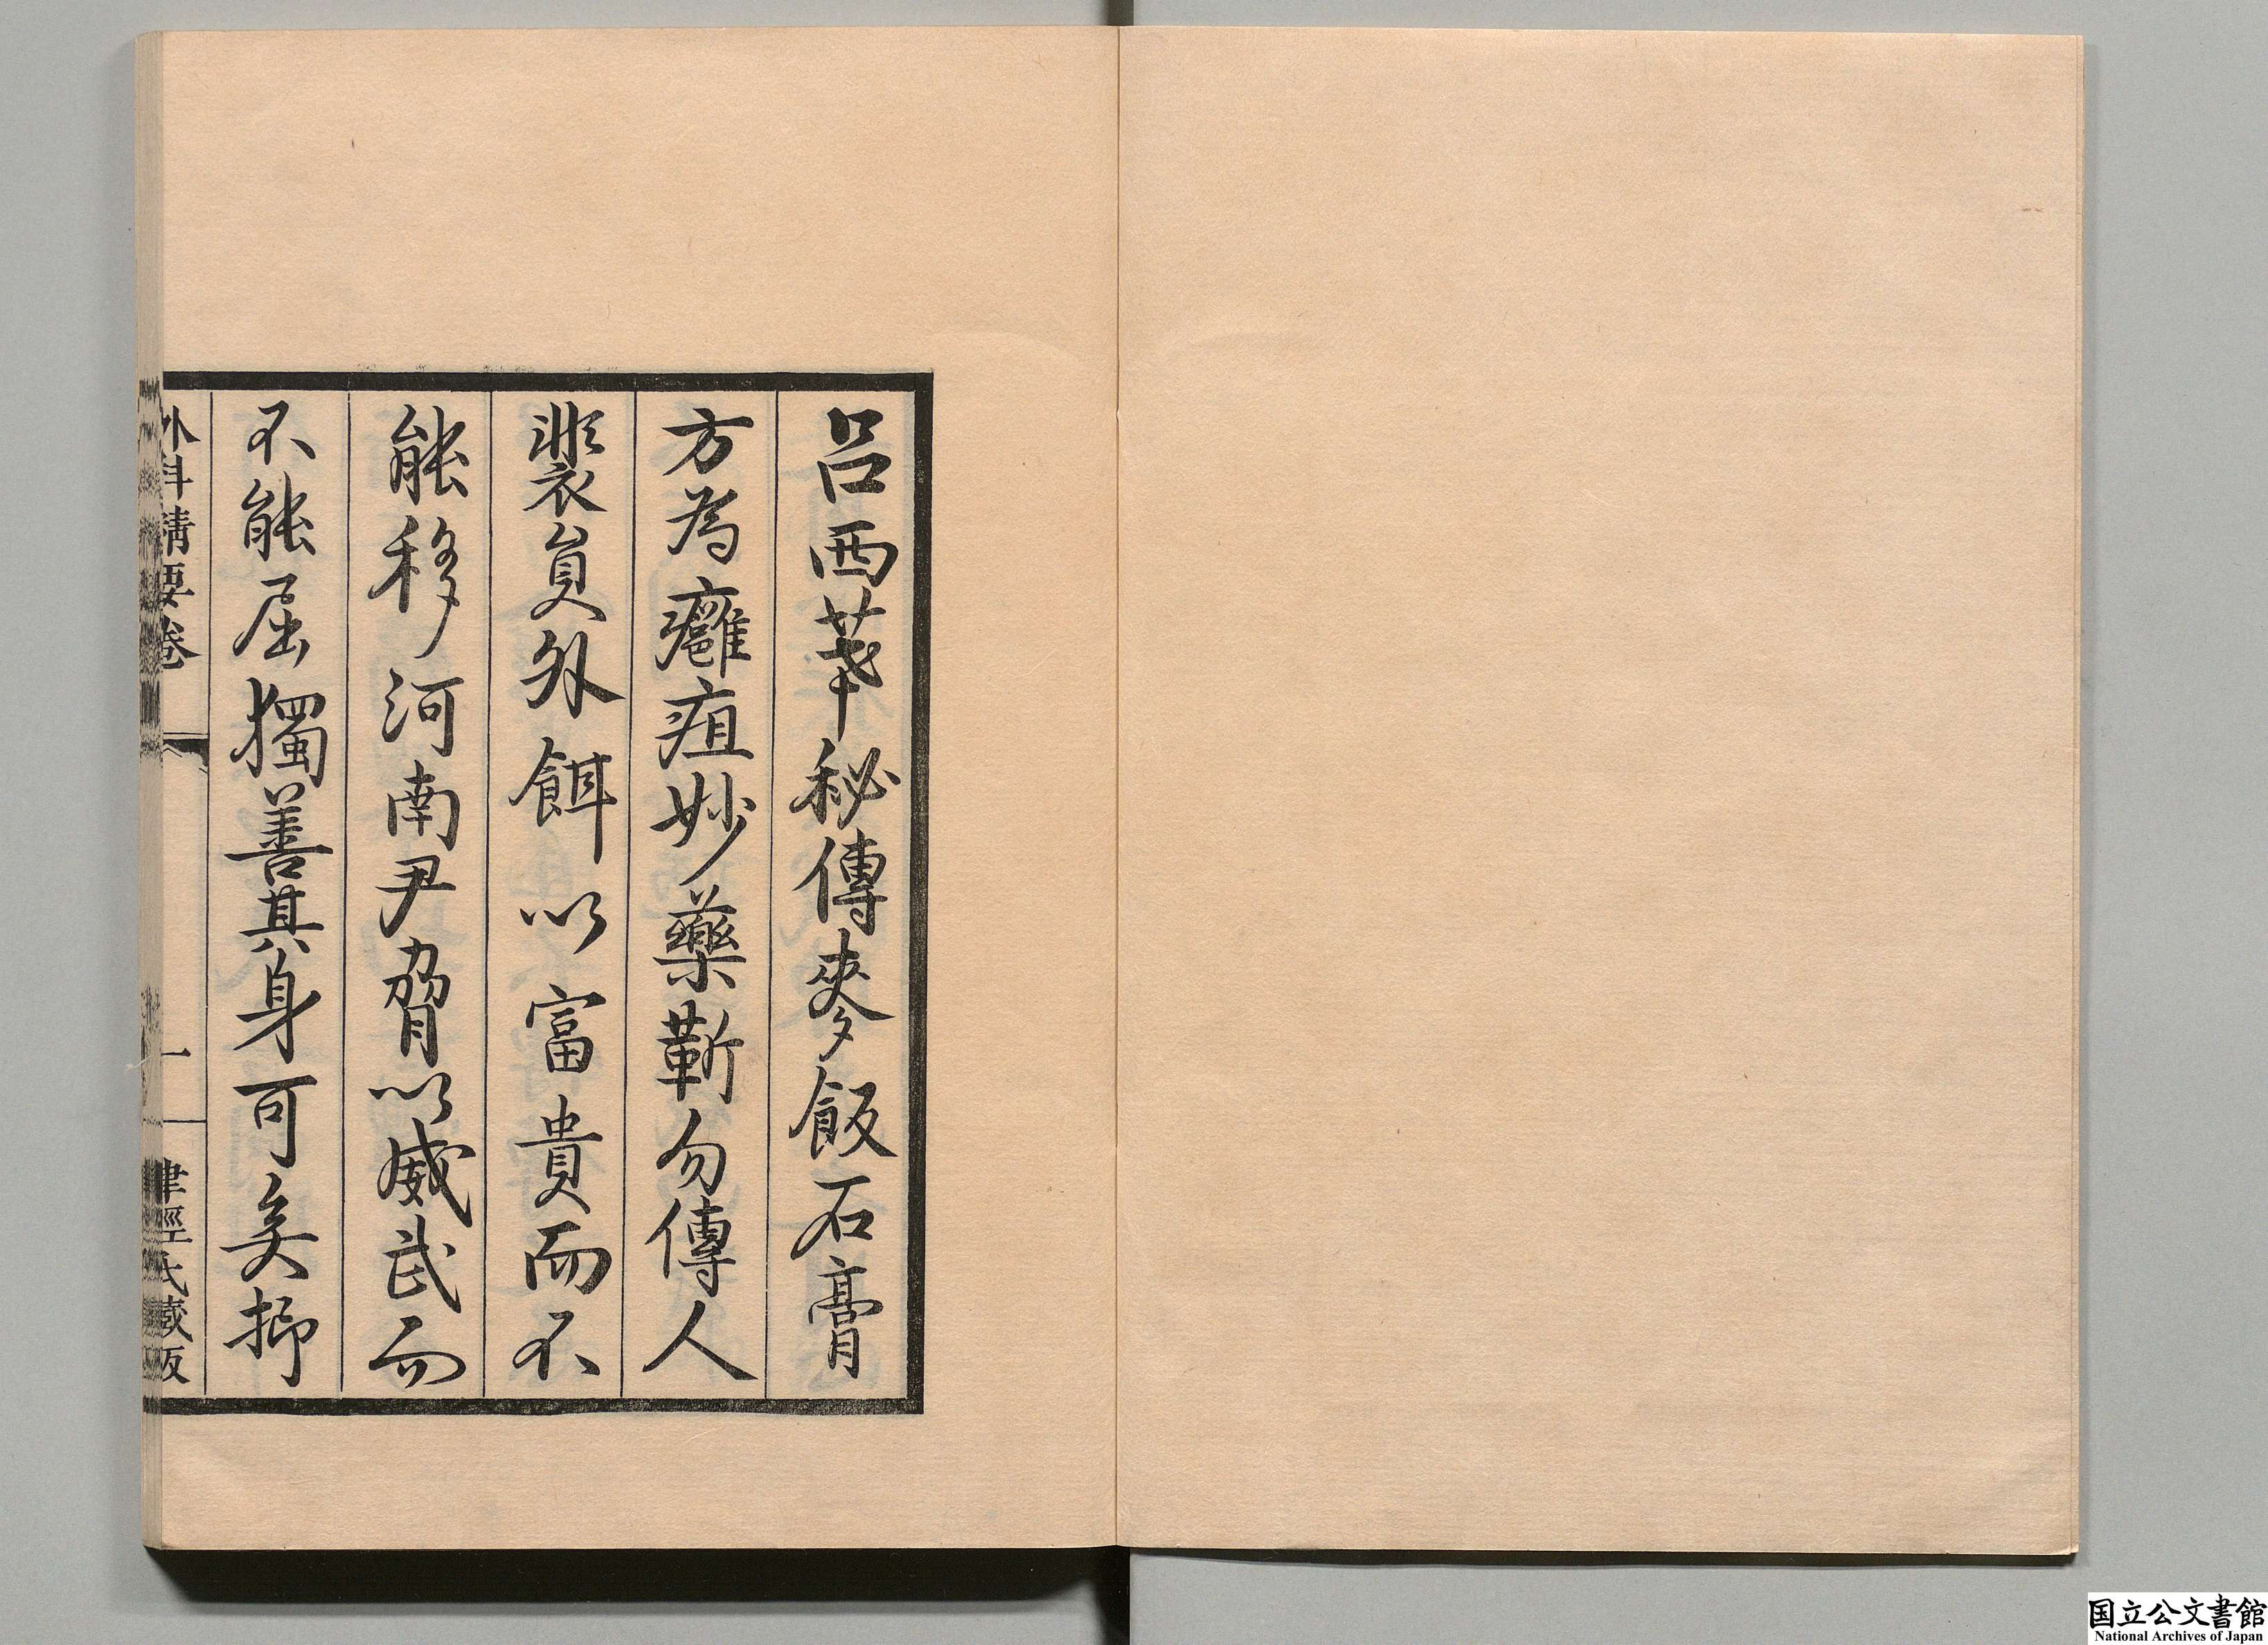 呂西華秘傳麥飯石膏
方為癰疽妙藥蘄勿傳人
裴員外餌以富貴而不
能移河南尹脅以威武而
不能屈獨善其身可矣抑
外科精要卷
一
聿脩氏蔵版
国立公文書館
National Archives of Japan